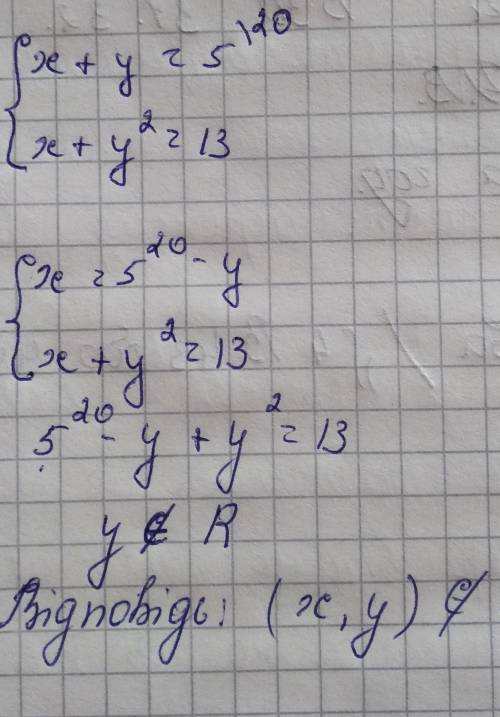 x + y = 5^20
x + y^2 = 13
x = 5^20 - y
x + y^2 = 13
5^20 - y + y^2 = 13
y ∉ R
Відповідь: (x, y) ∉